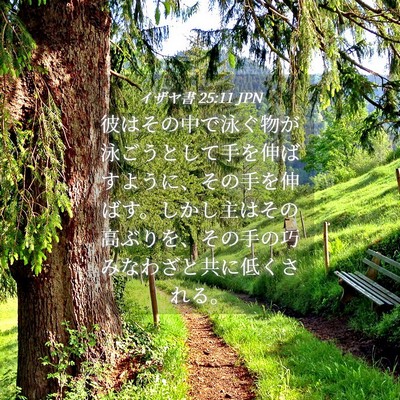 イザヤ書 25:11 JPN
彼はその中で泳ぐ物が
泳ごうとして手を伸ば
すように、その手を伸
ばす。しかし主はその
高ぶりを、その手の巧
みなわざと共に低くさ
れる。